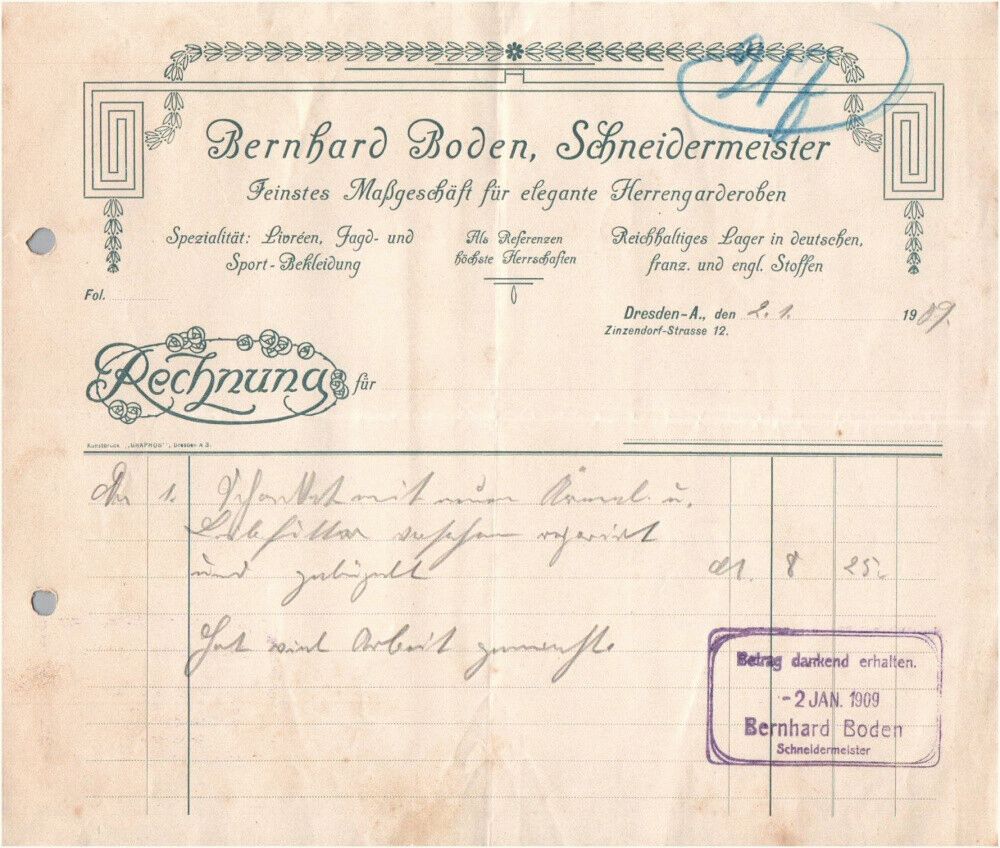 21
Bernhard Boden, Schneidermeister
Feinstes Maßgeschäft für elegante Herrengarderoben
Spezialität: Livréen, Jagd- und
Sport-Bekleidung
Als Referenzen
höchste Herrschaften
Reichhaltiges Lager in deutschen,
franz. und engl. Stoffen
Fol.
Dresden-A., den 2. 1. 1909.
Zinzendorf-Strasse 12.
Rechnung für
Kunstdruck „GRAPHOS", Dresden A 3.
1. mit neuen Ärmel. u.
reparirt
und gebügelt M. 8 25
Hat viel Arbeit gemacht.
Betrag dankend erhalten.
- 2 JAN. 1909
Bernhard Boden
Schneidermeister